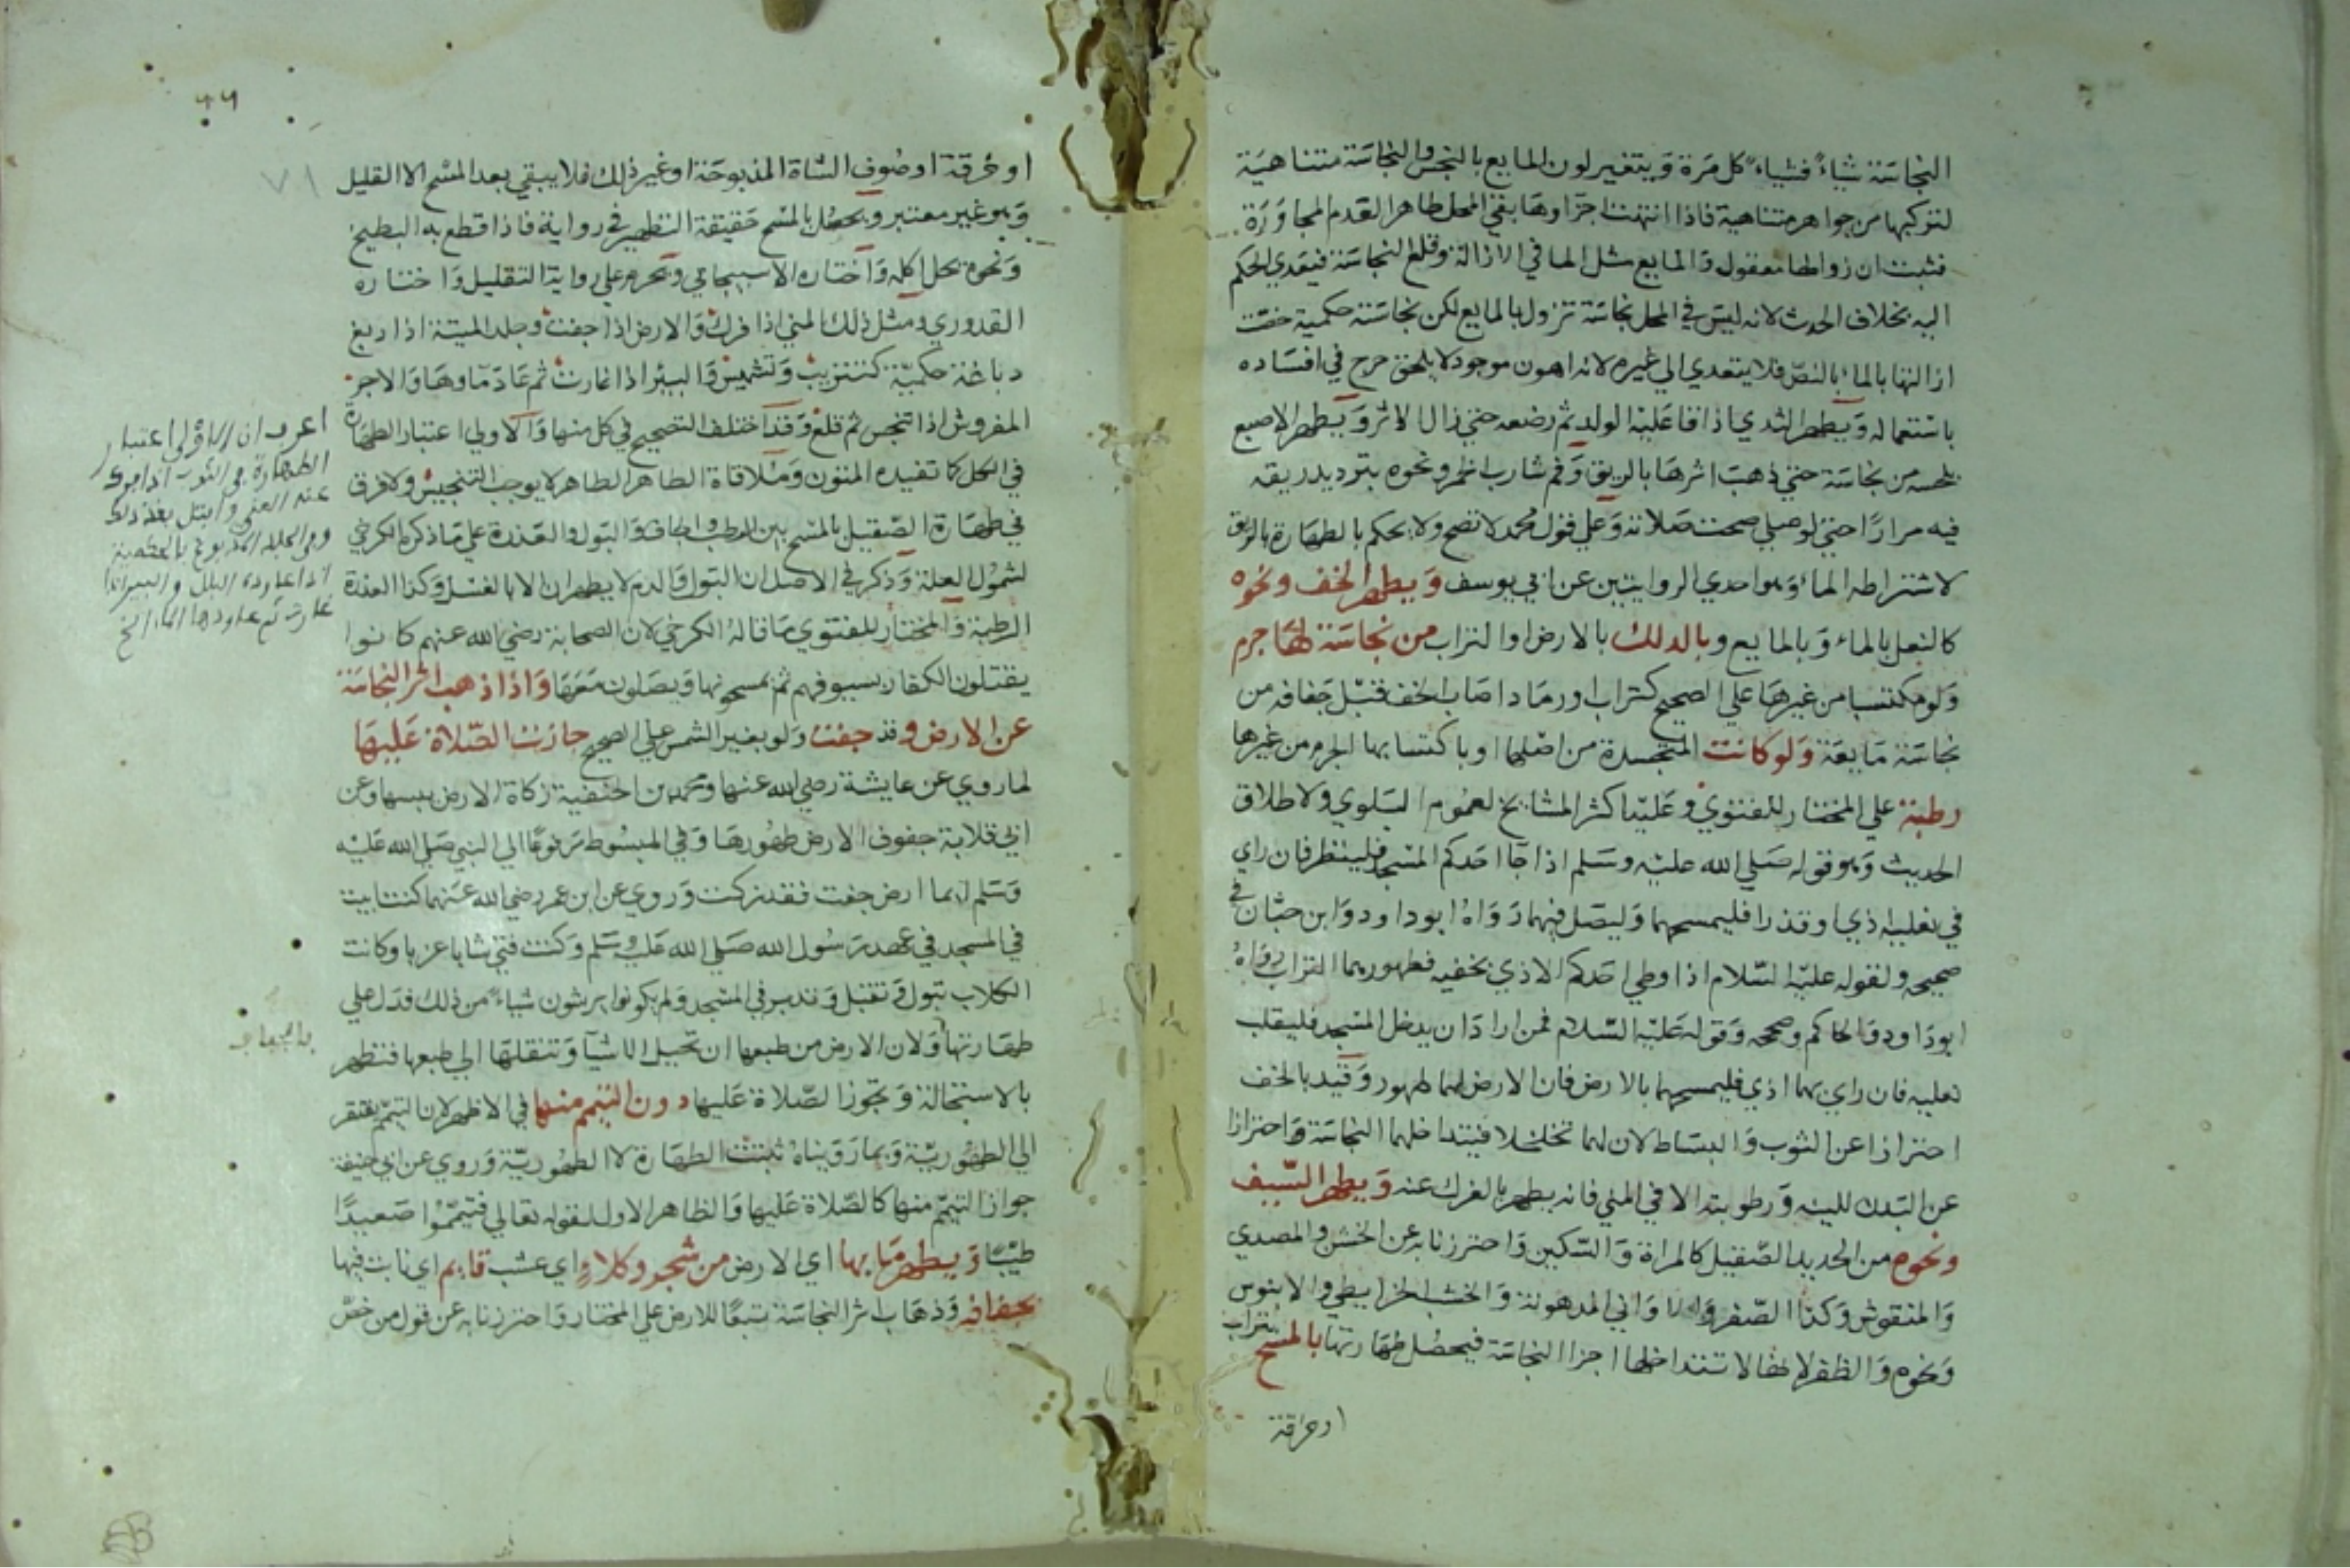 النجاسة شياءً فشياءً كل مرة ويتغير لون المايع بالنجس والنجاسة متناهية
لتركبها من جواهر متناهية فاذا انتهت اجزاوها بقي المحل طاهرا لعدم المجاورة
فثبت ان زوالها معقول والمايع مثل الما في الازالة وقلع النجاسة فيتعدي الحكم
اليه بخلاف الحدث لانه ليس في المحل نجاسة تزول بالمايع لكن نجاسة حكمية خصت
ازالتها بالماء بالنص فلا يتعدي الي غيره لانه اهون موجود لا يلحق حرج في افساده
باستعماله ويطهر الثدي اذا قا عليه الولد ثم رضعه حتي زال الاثر ويطهر الاصبع
بلحسه من نجاسة حتي ذهب اثرها بالريق وفم شارب الخمر ونحوه بترديد ريقه
فيه مرارًا حتي لو صلي صحت صلاته وعلي قول محمد لا تصح ولا يحكم بالطهارة بالريق
لاشتراطه الماء وهو احدي الروايتين عن ابي يوسف ويطهر الخف ونحوه
كالنعل بالماء وبالمايع وبالدلك بالارض او التراب من نجاسة لها جرم
ولو مكتسبا من غيرها علي الصحيح كتراب او رماد اصاب الخف قبل جفافه من
نجاسة مايعة ولو كانت المتجسدة من اصلها او باكتسابها الجرم من غيرها
رطبة علي المختار للفتوي وعليه اكثر المشايخ لعموم البلوي ولاطلاق
الحديث وهو قوله صلي الله عليه وسلم اذا جا احدكم المسجد فلينظر فان راي
في نعليه اذي او قذرا فليمسحهما وليصل فيهما رواه ابو داود وابن حبان في
صحيحه ولقوله عليه السلام اذا وطي احدكم الاذي بخفيه فطهورهما التراب رواه
ابو داود والحاكم وصححه وقوله عليه السلام فمن اراد ان يدخل المسجد فليقلب
نعليه فان راي بهما اذي فليمسحهما بالارض فان الارض لهما طهور وقيد بالخف
احترازا عن الثوب والبساط لان لهما تخلخلا فيتداخلهما النجاسة واحترازا
عن البدن للينه ورطوبته الا في المني فانه يطهر بالفرك عنه ويطهر السيف
ونحوه من الحديد الصقيل كالمراة والسكين واحترزنا به عن الخشن والمصدي
والمنقوش وكذا الصفر واواني المدهونة والخشب الخرايطي والابنوس
ونحوه والظفر لانها لا تتداخلها اجزا النجاسة فيحصل طهارتها بالمسح بتراب
او خرقة
٦٦
٧١
او خرقة او صوف الشاة المذبوحة او غير ذلك فلا يبقي بعد المسح الا القليل
وهو غير معتبر ويحصل بالمسح حقيقة التطهير في رواية فاذا قطع به البطيخ
ونحوه يحل اكله واختاره الاسبيجابي ويحرم علي رواية التقليل واختاره
القدوري ومثل ذلك المني اذا فرك والارض اذا جفت وجلد الميتة اذا دبغ
دباغة حكمية كتتريب وتشميس والبير اذا غارت ثم عاد ماوها والاجر
المفروش اذا تنجس ثم قلع وقد اختلف التصحيح في كل منها والاولي اعتبار الطهارة
في الكل كما تفيده المتون وملاقاة الطاهر الطاهر لا يوجب التنجيس ولا فرق
في طهارة الصقيل بالمسح بين الرطب والجاف والبول والعذرة علي ما ذكره الكرخي
لشمول العلة وذكر في الاصل ان البول والدم لا يطهران الا بالغسل وكذا العذرة
الرطبة والمختار للفتوي ما قاله الكرخي لان الصحابة رضي الله عنهم كانوا
يقتلون الكفار بسيوفهم ثم يمسحونها ويصلون معها واذا ذهب اثر النجاسة
عن الارض وقد جفت ولو بغير الشمس علي الصحيح جازت الصلاة عليها
لما روي عن عايشة رضي الله عنها ومحمد بن الحنفية زكاة الارض يبسها وعن
ابي قلابة جفوف الارض طهورها وفي المبسوط مرفوعًا الي النبي صلي الله عليه
وسلم ايما ارض جفت فقد زكت وروي عن ابن عمر رضي الله عنهما كنت ابيت
في المسجد في عهد رسول الله صلي الله عليه وسلم وكنت فتي شابا عزبا وكانت
الكلاب تبول وتقبل وتدبر في المسجد ولم يكونوا يرشون شياءً من ذلك فدل علي
طهارتها ولان الارض من طبعها ان تحيل الاشيا وتنقلها الي طبعها فتطهر
بالاستحالة وتجوز الصلاة عليها دون التيمم منها في الاظهر لان التيمم يفتقر
الي الطهورية وبما رويناه ثبتت الطهارة لا الطهورية وروي عن ابي حنيفة
جواز التيمم منها كالصلاة عليها والظاهر الاول لقوله تعالي فتيمموا صعيدًا
طيبًا ويطهر ما بها اي الارض من شجر وكلاءٍ اي عشب قايم اي نابت فيها
بجفافه وذهاب اثر النجاسة تبعًا للارض علي المختار واحترزنا به عن قول من خص
اعرب ان الاولي اعتبار
الطهارة في الثوب اذا فرك
عنه المني وابتل بعد ذلك
وفي الجلد المدبوغ بالحكمية
اذا عاوده البلل والبير اذا
غارت ثم عاودها الماء الخ
بالجفاف